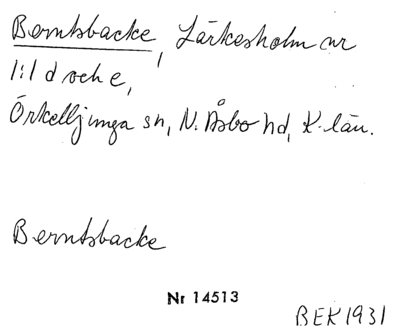 Berntsbacke, Lärkesholm nr
1:1 d och e,
Örkelljunga sn, N. Åsbo hd, K. län.
Berntsbacke
Nr 14513
BEK 1931